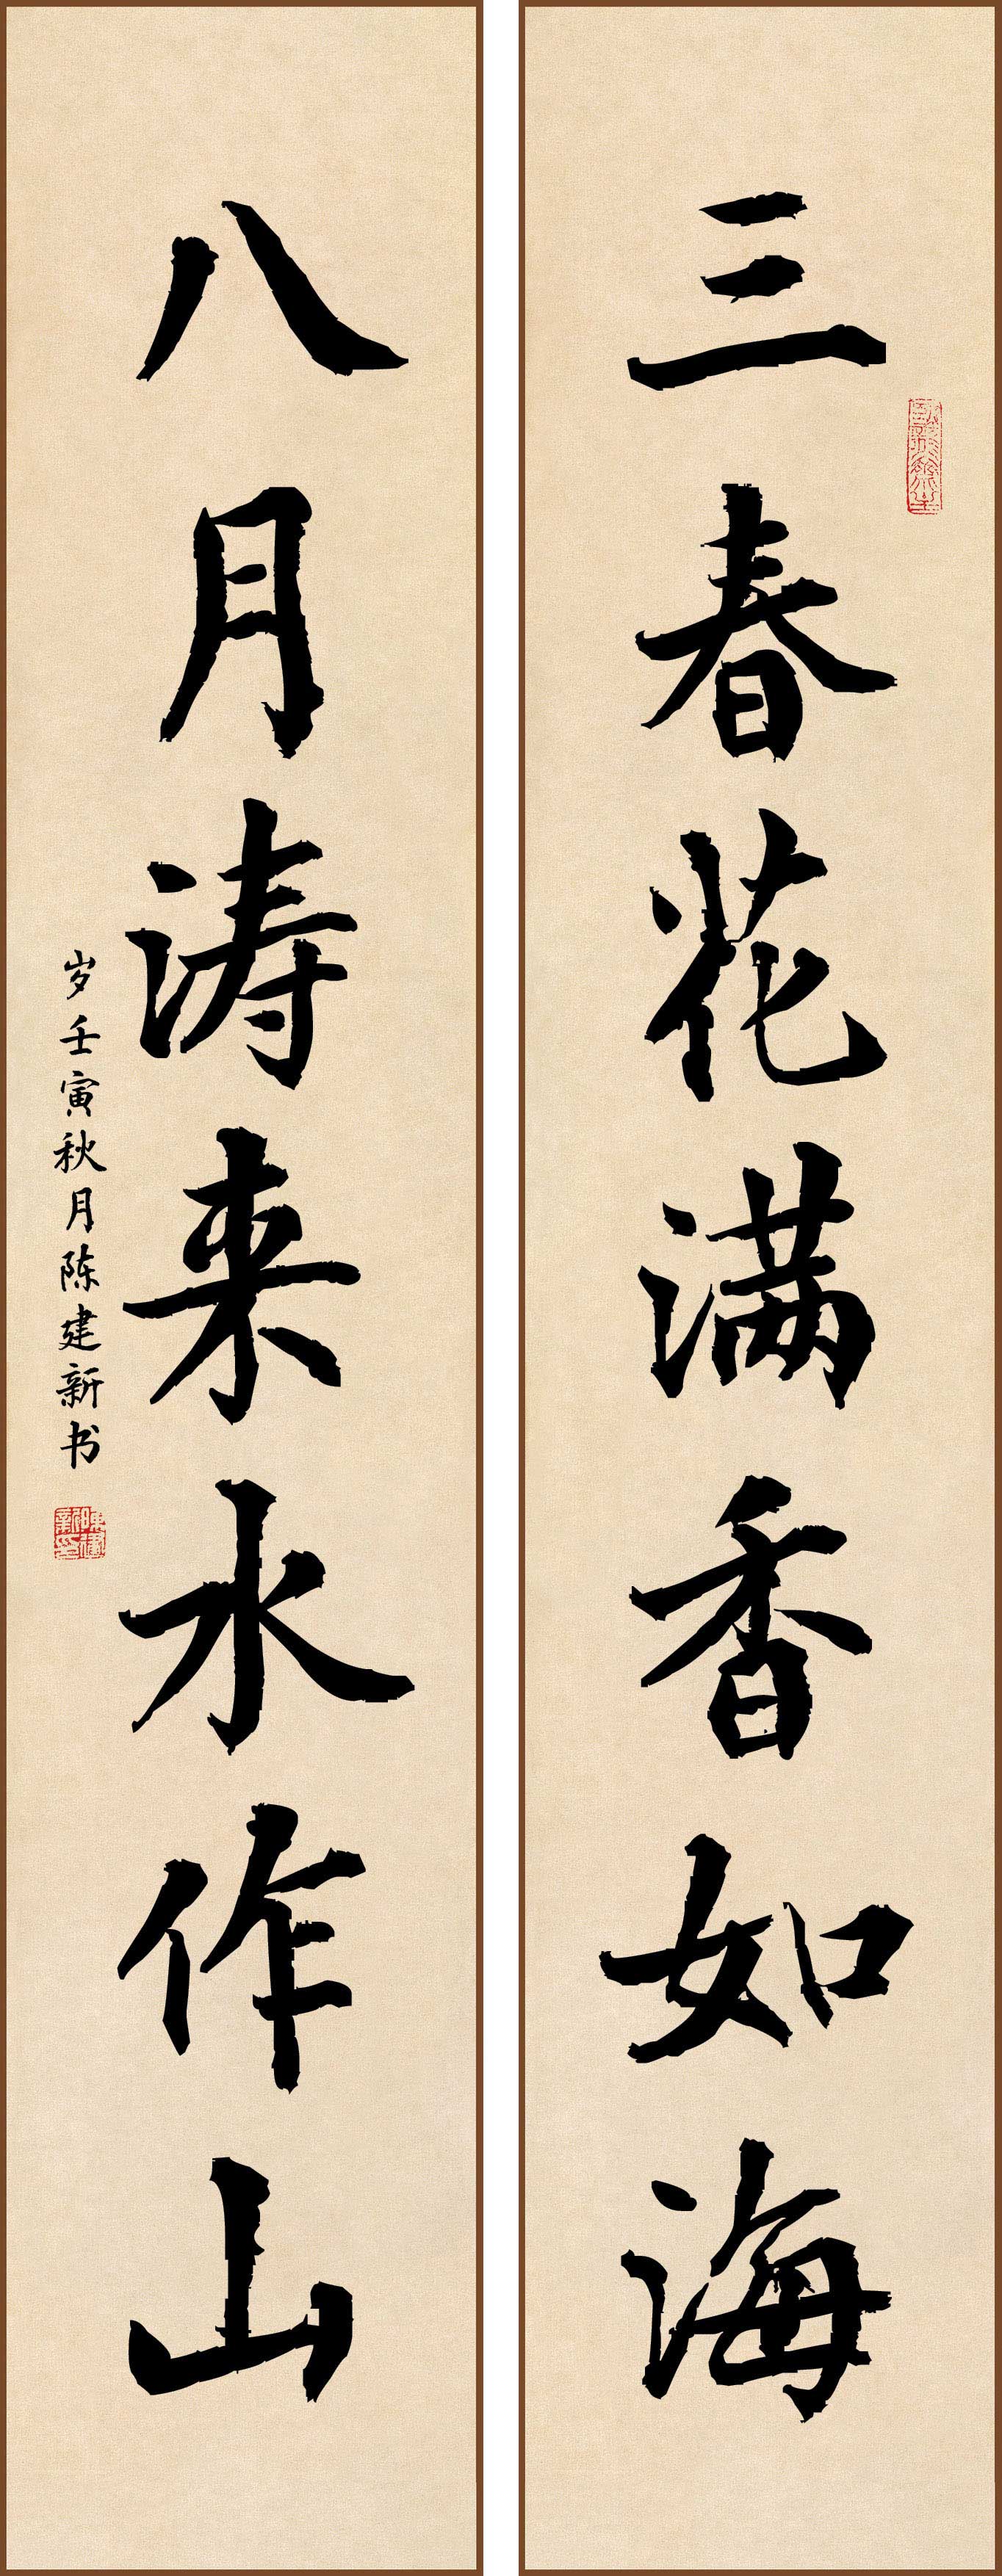 三春花满香如海
八月涛来水作山
岁壬寅秋月陈建新书
陈建新印